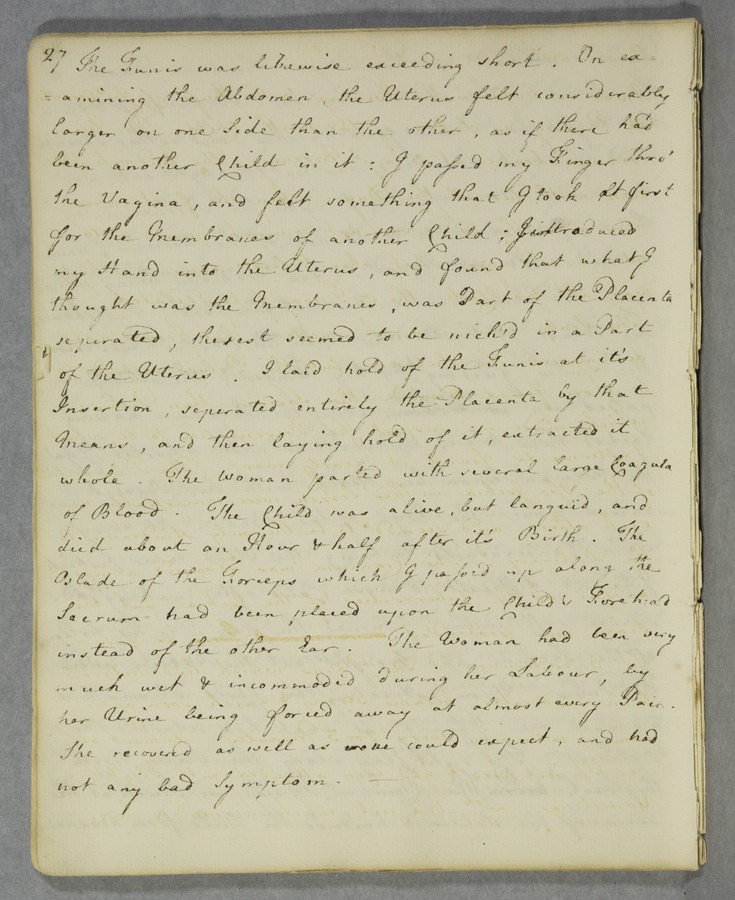 27 The Funis was likewise exceeding short. On ex=
=amining the Abdomen, the Uterus felt considerably
larger on one Side than the other, as if there had
been another Child in it: I passed my Finger thro'
the Vagina, and felt something that I took at first
for the Membranes of another Child; I introduced
my Hand into the Uterus, and found that what I
thought was the Membranes, was Part of the Placenta
seperated, the rest seemed to be nich'd in a Part
of the Uterus. I laid hold of the Funis at it's
Insertion, seperated entirely the Placenta by that
Means, and then laying hold of it, extracted it
whole. The Woman parted with several large Coagula
of Blood. The Child was alive, but languid, and
died about an Hour & half after it's Birth. The
Blade of the Forceps which I passed up along the
Sacrum had been placed upon the Child's Forehead
instead of the other Ear. The Woman had been very
much wet & incommoded during her Labour, by
her Urine being forced away at almost every Pain.
She recovered as well as we could expect, and had
not any bad Symptom.